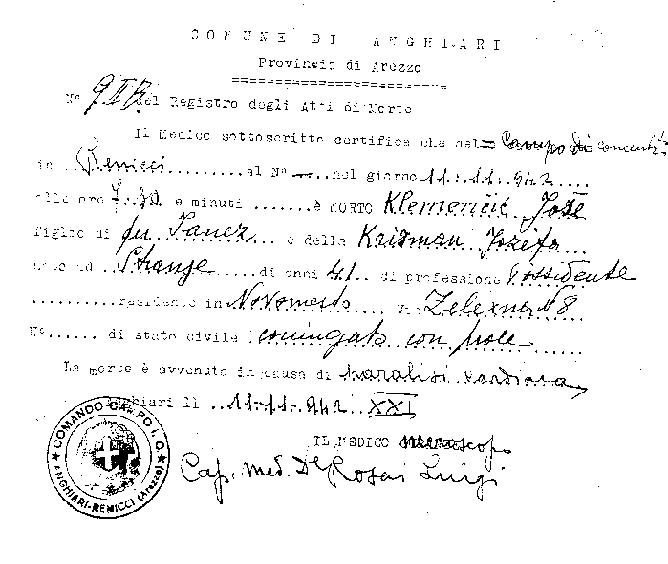 COMUNE DI ANGHIARI
Provincia di Arezzo
N° del Registro degli Atti di Morte
Il Medico sottoscritto certifica che nel Campo di concent.
in Renicci al N° nel giorno 11.11.942
alle ore 7.30 e minuti è MORTO Klemenčič Jože
figlio di fu Janez e della Krizman Jozefa
nato ad Stranje di anni 41 di professione Possidente
residente in Novomesto Zelezne N 8
N° di stato civile coniugato con prole
La morte è avvenuta in causa di paralisi cardiaca
Anghiari li 11.11.942 XXI
IL MEDICO
Cap. Med. Dr Rosai Luigi
COMANDO CAMPO I. O.
ANGHIARI-RENICCI (Arezzo)